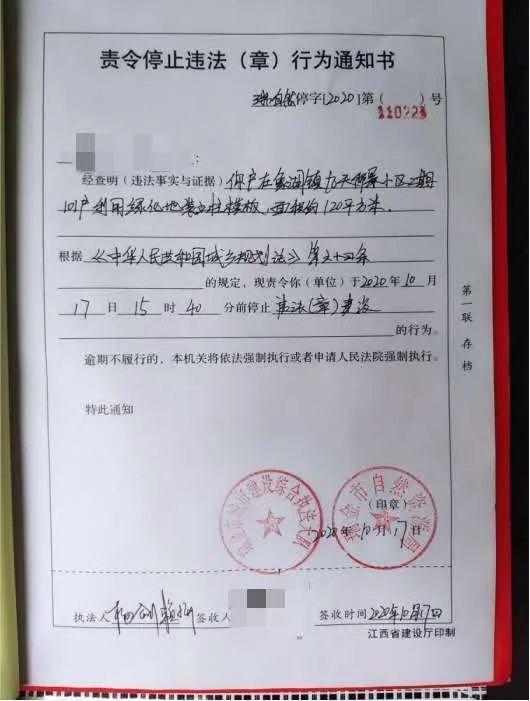 责令停止违法（章）行为通知书
停字[2020]第（110223）号
：
经查明（违法事实与证据）你户在象湖镇九天祥景小区二期
户利用绿化地装立柱模板，面积约120平方米。
根据《中华人民共和国城乡规划法》第六十四条
的规定，现责令你（单位）于2020年10月
17日15时40分前停止违法（章）建设
的行为。
逾期不履行的，本机关将依法强制执行或者申请人民法院强制执行。
特此通知
第一联 存档
瑞金市城市建设综合执法大队
瑞金市自然资源局
（印章）
2020年10月17日
执法人 签收人 签收时间2020年10月17日
江西省建设厅印制